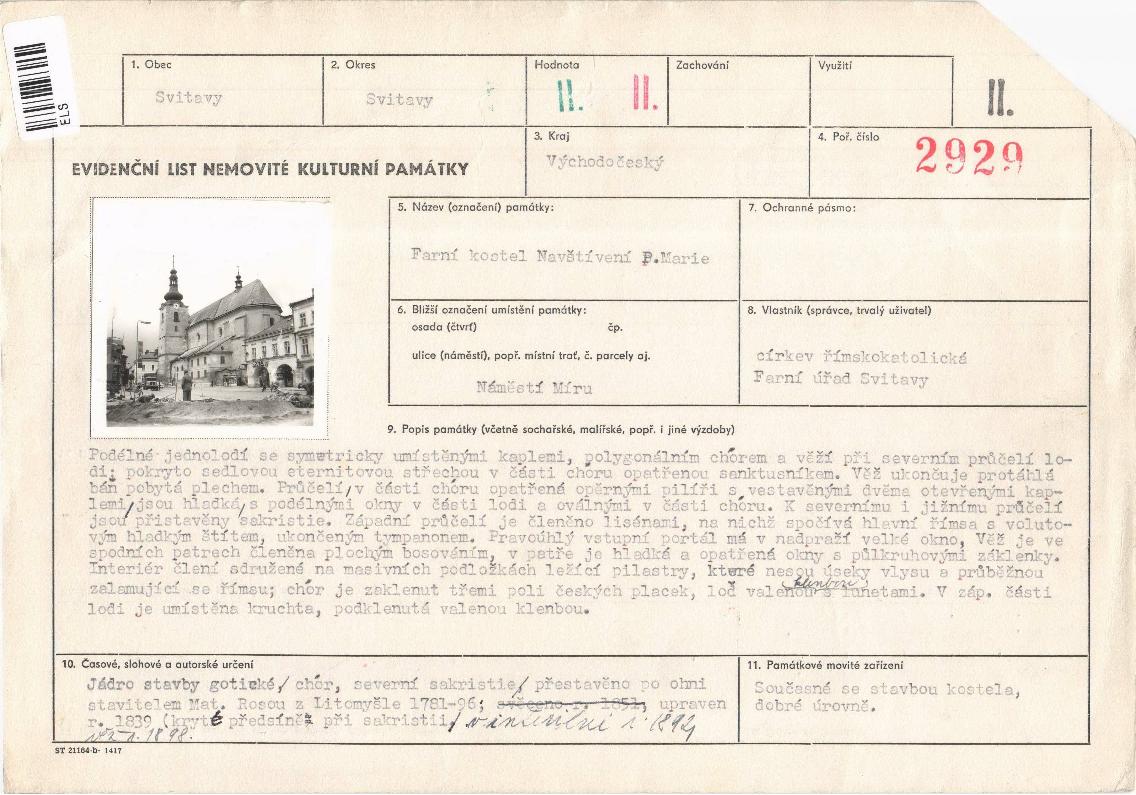 ELS
1. Obec
Svitavy
2. Okres
Svitavy
Hodnota
II. II.
Zachování
Využití
II.
3. Kraj
Východočeský
4. Poř. číslo
2929
EVIDENČNÍ LIST NEMOVITÉ KULTURNÍ PAMÁTKY
5. Název (označení) památky:
Farní kostel Navštívení P.Marie
7. Ochranné pásmo:
6. Bližší označení umístění památky:
osada (čtvrť) čp.
ulice (náměstí), popř. místní trať, č. parcely aj.
Náměstí Míru
8. Vlastník (správce, trvalý uživatel)
církev římskokatolická
Farní úřad Svitavy
9. Popis památky (včetně sochařské, malířské, popř. i jiné výzdoby)
Podélné jednolodí se symetricky umístěnými kaplemi, polygonálním chórem a věží při severním průčelí lo-
di; pokryto sedlovou eternitovou střechou v části chóru opatřenou sanktusníkem. Věž ukončuje protáhlá
báň pobytá plechem. Průčelí/v části chóru opatřená opěrnými pilíři s vestavěnými dvěma otevřenými kap-
lemi/jsou hladká/s podélnými okny v části lodi a oválnými v části chóru. K severnímu i jižnímu průčelí
jsou přistavěny sakristie. Západní průčelí je členěno lisénami, na nichž spočívá hlavní římsa s voluto-
vým hladkým štítem, ukončeným tympanonem. Pravoúhlý vstupní portál má v nadpraží velké okno, Věž je ve
spodních patrech členěna plochým bosováním, v patře je hladká a opatřená okny s půlkruhovými záklenky.
Interiér člení sdružené na masivních podložkách ležící pilastry, které nesou úseky vlysu a průběžnou
zalamující se římsu; chór je zaklenut třemi poli českých placek, loď valenou klenbou s lunetami. V záp. části
lodi je umístěna kruchta, podklenutá valenou klenbou.
10. Časové, slohové a autorské určení
Jádro stavby gotické/ chór, severní sakristie/ přestavěno po ohni
stavitelem Mat. Rosou z Litomyšle 1781-96; svěceno r. 1851, upraven
r. 1839 (kryté předsíně při sakristii/ r. 1892,
věž r. 1898.
11. Památkové movité zařízení
Současné se stavbou kostela,
dobré úrovně.
ST 21164-b- 1417